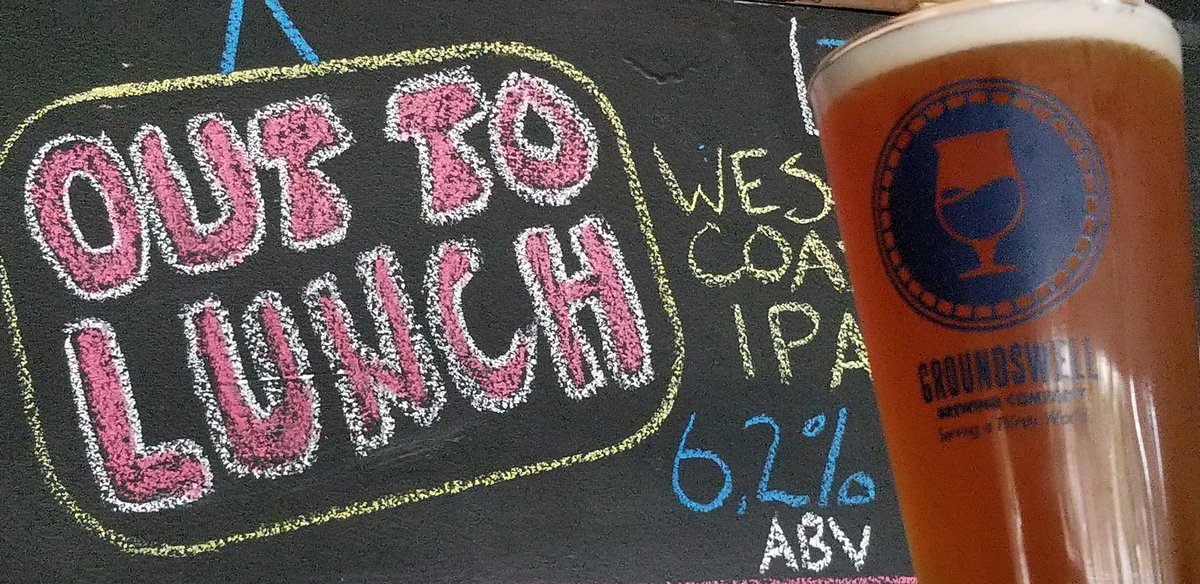 OUT TO
LUNCH
WES
COA
IPA
6,2%
ABV
GROUNDSWELL
BREWING COMPANY
Serving a Thirsty World